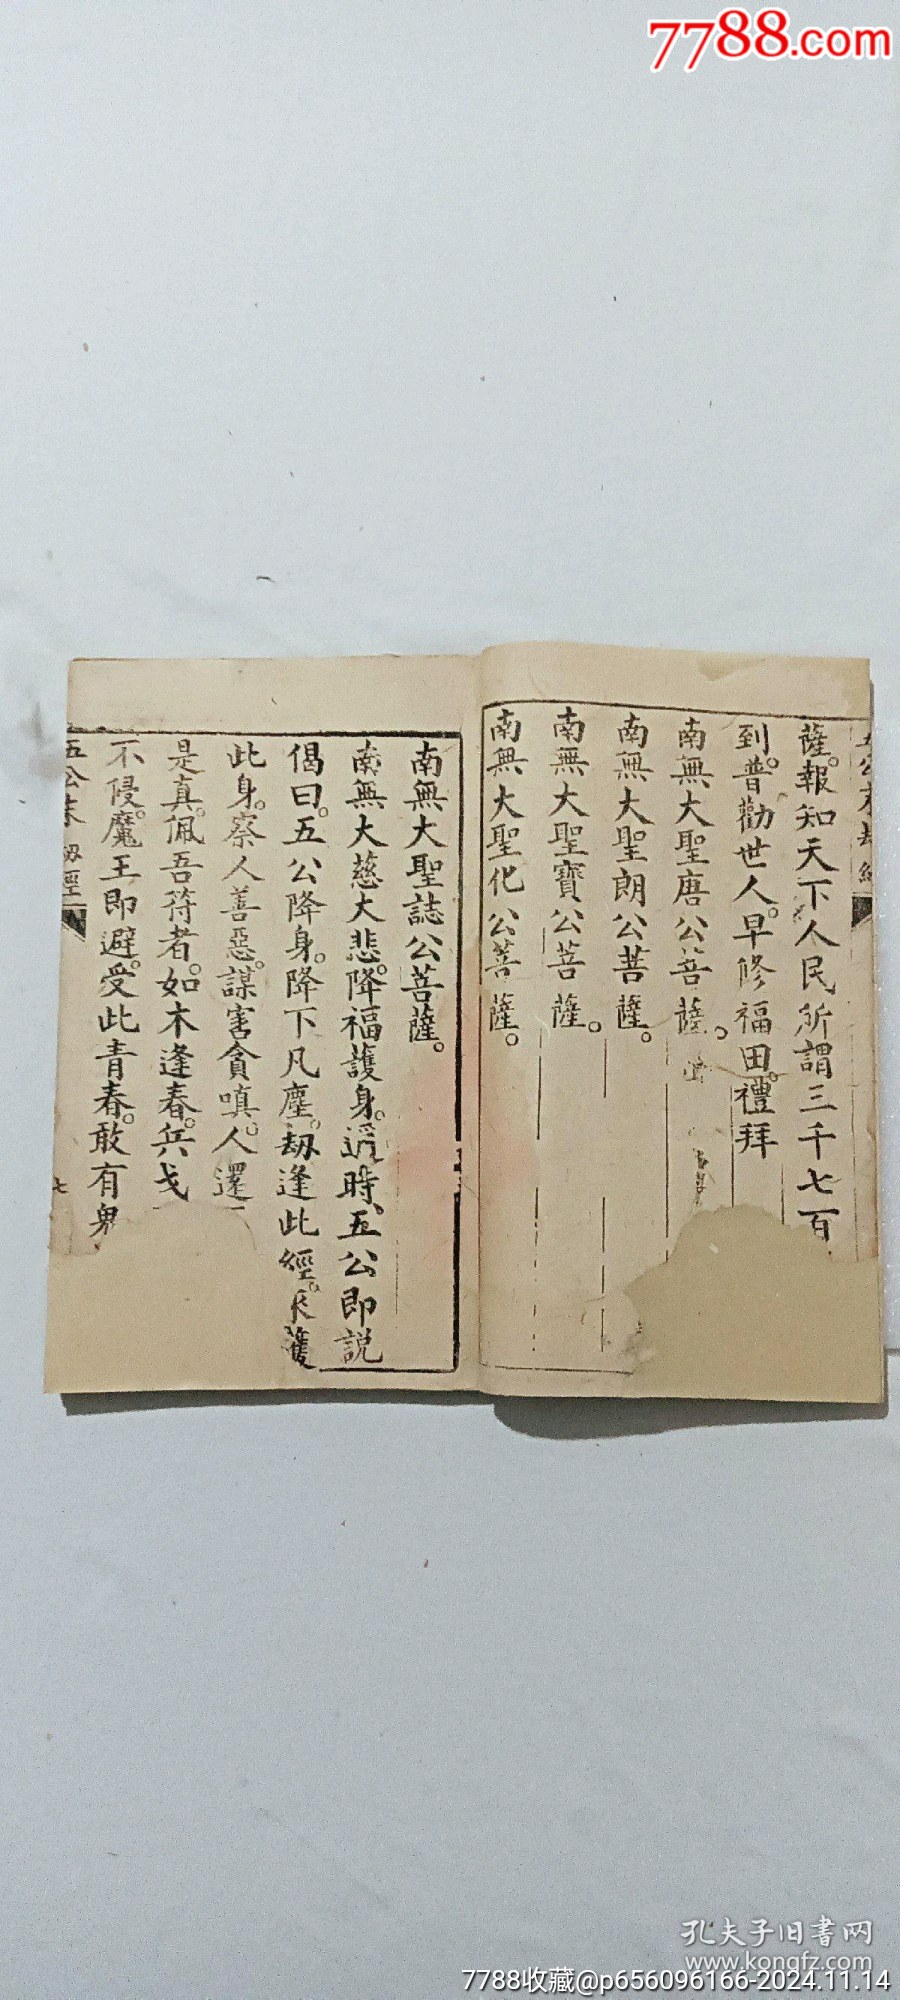 7788.com
薩。報知天下人民所謂三千七百
到。普勸世人。早修福田。禮拜
南無大聖唐公菩薩。
南無大聖朗公菩薩。
南無大聖寶公菩薩。
南無大聖化公菩薩。
南無大聖誌公菩薩。
南無大慈大悲。降福護身。適時、五公即説
偈曰。五公降身。降下凡塵。刼逢此經。 護
此身。察人善惡。謀害貪嗔。人還
是真。佩吾符者。如木逢春。兵戈
不侵。魔王即避。受此青春。敢有鬼
五公末刼經
七
孔夫子旧書网
www.kongfz.com
7788收藏@p656096166-2024.11.14